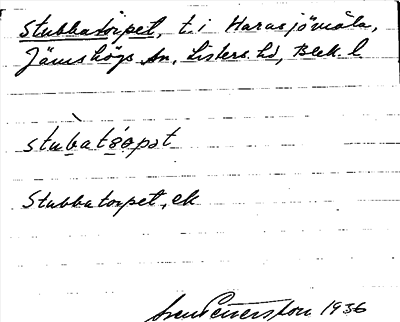 Stubbatorpet, t. i Harasjömåla,
Jämshögs sn, Listers hd, Blek. l.
Stubbatorpet, ek
1936